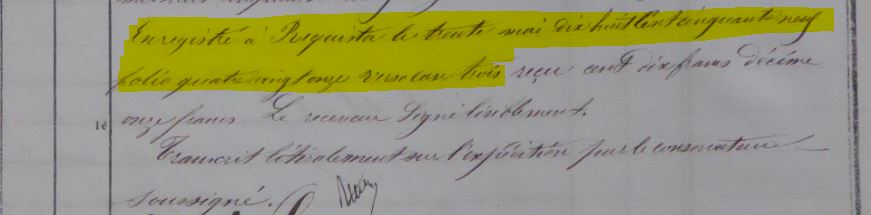 Enregistré à Requista le trente mai dix huit cent cinquante neuf
folio quatre vingt onze verso case trois reçu cent dix francs décime
onze francs. Le receveur Signé lisiblement.
Transcrit littéralement sur l'expédition par le conservateur
soussigné.